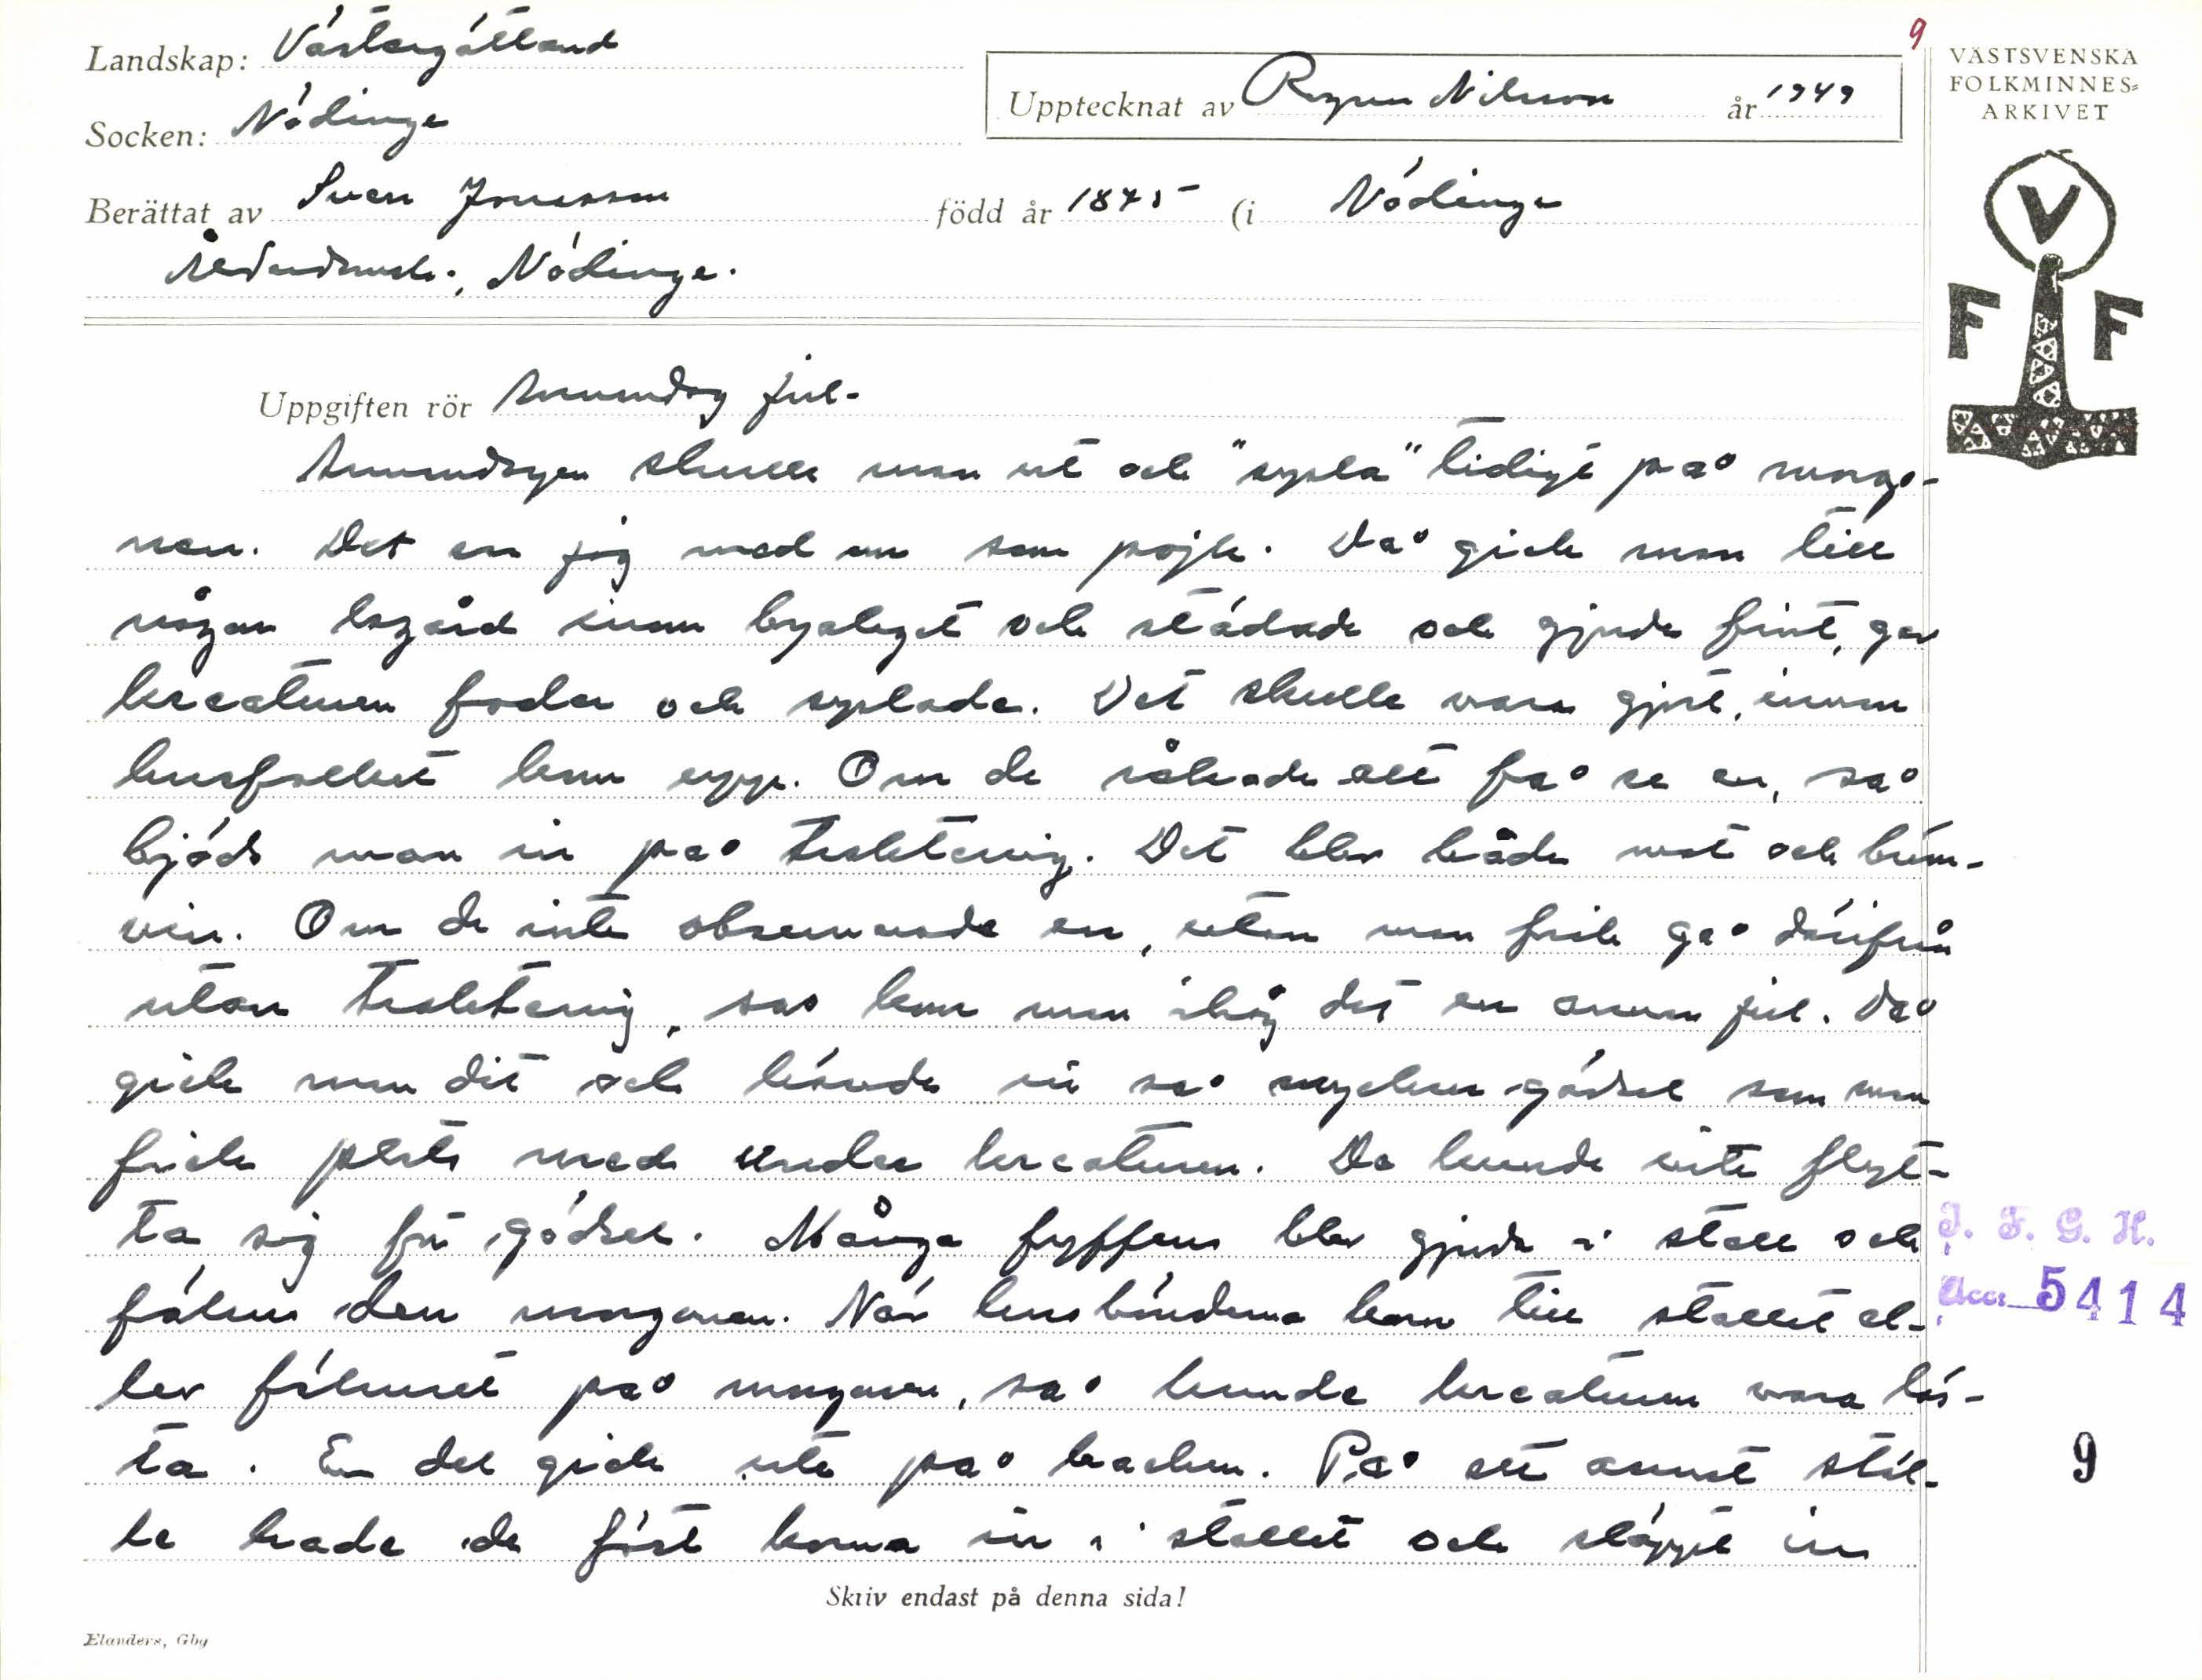 9
Landskap: Västergötland
VÄSTSVENSKA
FOLKMINNES-
ARKIVET
Upptecknat av Ragnar Nilsson år 1949
Socken: Nödinge
Berättat av Sven Jonasson född år 1875 (i Nödinge
Nödinge.
V
F F
Uppgiften rör Annandag jul.
Annandagen skulle man ut och "sopla" tidigt på morgo-
nen. Det var jag med om som pojk. Då gick man till
någon lagård inom byalaget och städade och gjorde fint, gav
kreaturen foder och soplade. Det skulle vara gjort, innan
husfolket kom upp. Om de råkade att få se en, så
bjöds man in på traktering. Det blev både mat och brän-
vin. Om de inte observerade en, utan man fick gå därifrån
utan traktering, så kom man ihåg det en annan jul. Då
gick man dit och körde in så mycken gödsel som man
fick plats med under kreaturen. De kunde inte flyt-
ta sig för gödsel. Många fyffens blev gjorda i stall och
fähus den morgonen. När husbönderna kom till stallet el-
ler fähuset på morgonen, så kunde kreaturen vara lös-
ta. En del gick ute på backen. På ett annat stäl-
le hade de fört korna in i stallet och släppt in
J. F. G. H.
Acc. 5414
9
Skriv endast på denna sida!
Elanders, Gbg